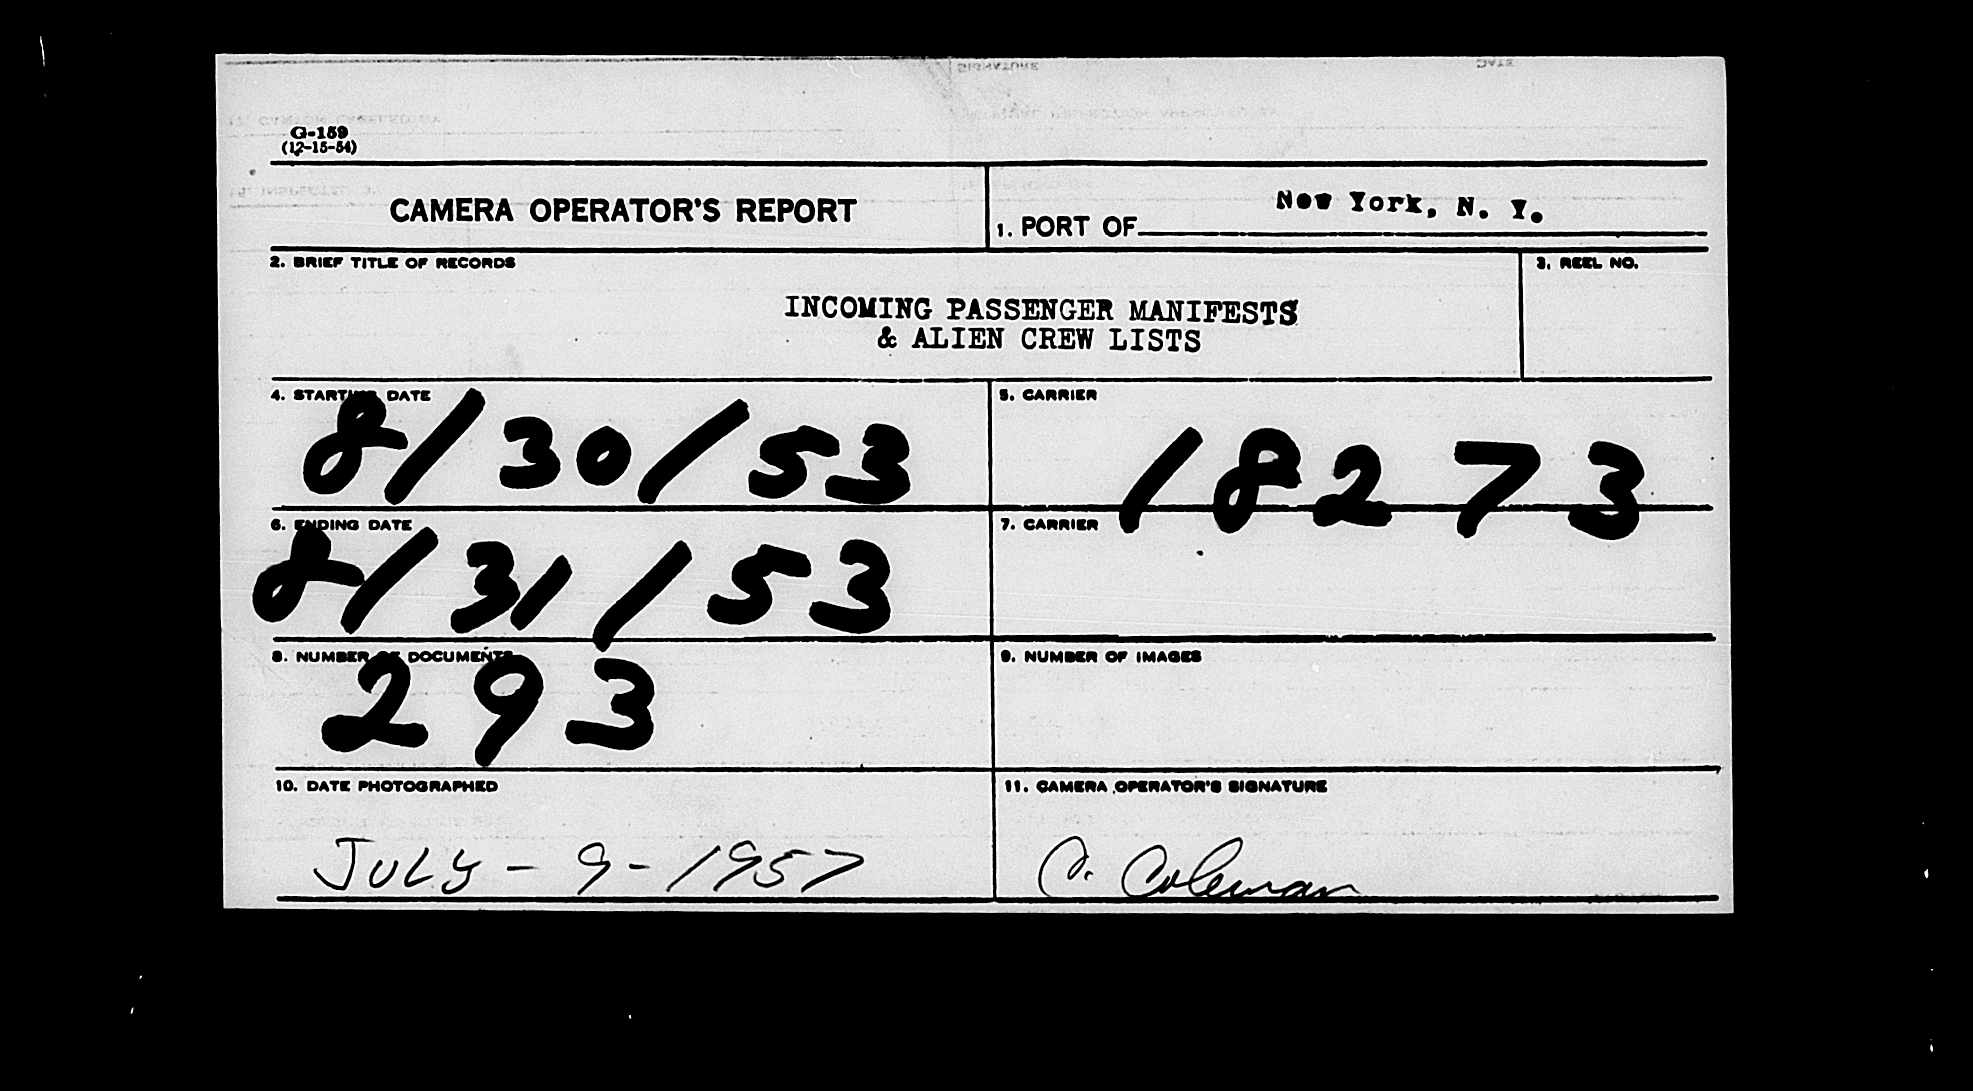 G-159
(12-15-54)
CAMERA OPERATOR'S REPORT
1. PORT OF New York, N. Y.
2. BRIEF TITLE OF RECORDS
3. REEL NO.
INCOMING PASSENGER MANIFESTS
& ALIEN CREW LISTS
4. STARTING DATE
8/30/53
5. CARRIER
18273
6. ENDING DATE
8/31/53
7. CARRIER
8. NUMBER OF DOCUMENTS
293
9. NUMBER OF IMAGES
10. DATE PHOTOGRAPHED
JULY - 9 - 1957
11. CAMERA OPERATOR'S SIGNATURE
C. Coleman